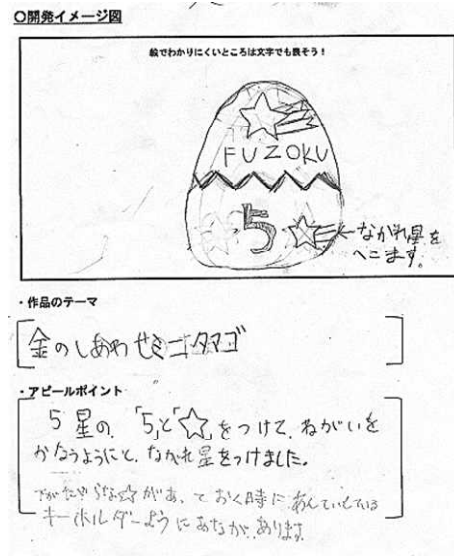 〇開発イメージ図
絵でわかりにくいところは文字でも表そう！
FUZOKU
5
←ながれ星を
へこます。
・作品のテーマ
金のしあわせミニタマゴ
・アピールポイント
5星の「5」と「☆」をつけて、ねがいを
かなうようにと、ながれ星をつけました。
があっておく時にあんていしている
キーホルダーようにあながあります